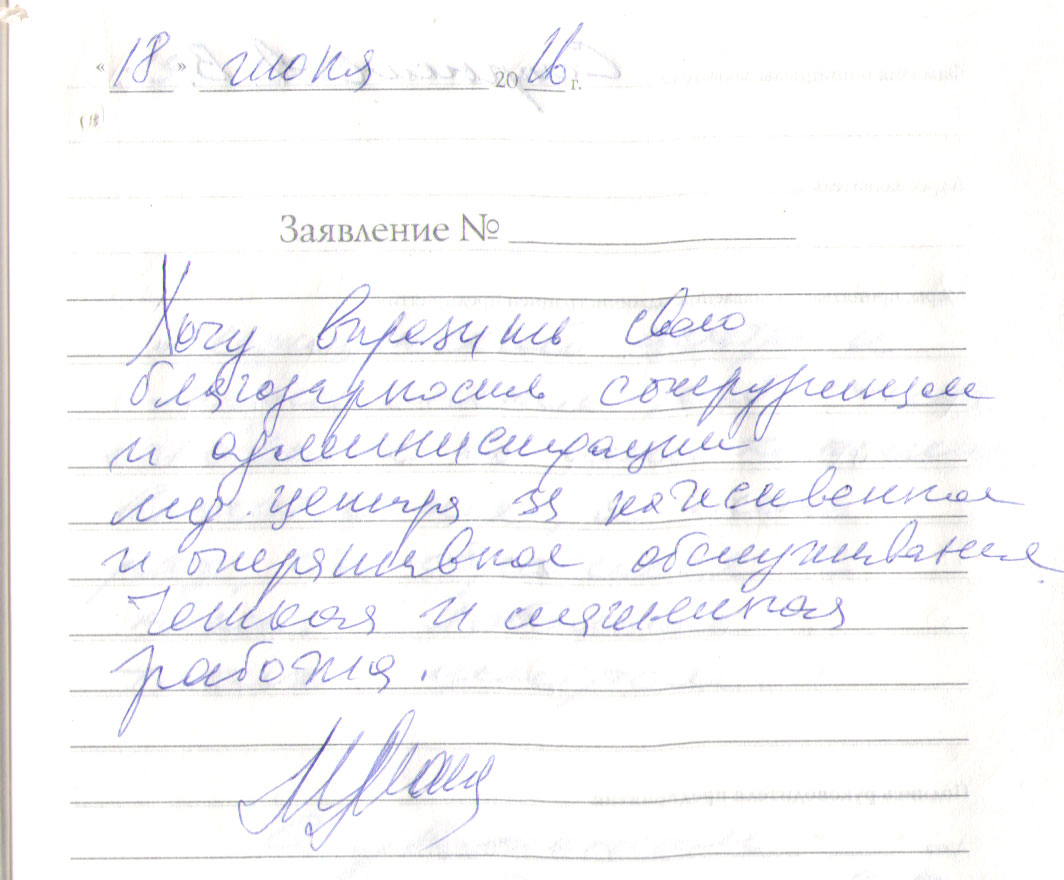 « 18 » июня 2016 г.
Заявление №
Хочу выразить свою
благодарность сотрудникам
и администрации
мед. центра за качественное
и оперативное обслуживание.
Четкая и слаженная
работа.